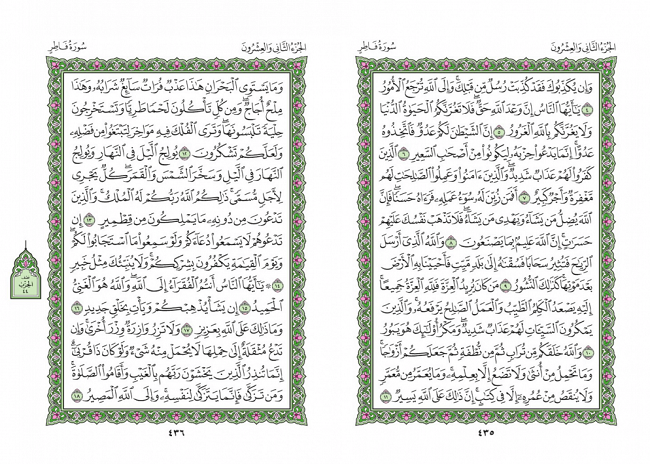 الجُزْءُ الثَّانِي وَالعِشْرُونَ
سُورَةُ فَاطِرٍ
وَإِن يُكَذِّبُوكَ فَقَدْ كُذِّبَتْ رُسُلٌ مِّن قَبْلِكَ وَإِلَى ٱللَّهِ تُرْجَعُ ٱلْأُمُورُ
٤ يَٰٓأَيُّهَا ٱلنَّاسُ إِنَّ وَعْدَ ٱللَّهِ حَقٌّ فَلَا تَغُرَّنَّكُمُ ٱلْحَيَوٰةُ ٱلدُّنْيَا
وَلَا يَغُرَّنَّكُم بِٱللَّهِ ٱلْغَرُورُ ٥ إِنَّ ٱلشَّيْطَٰنَ لَكُمْ عَدُوٌّ فَٱتَّخِذُوهُ
عَدُوًّا إِنَّمَا يَدْعُوا۟ حِزْبَهُۥ لِيَكُونُوا۟ مِنْ أَصْحَٰبِ ٱلسَّعِيرِ ٦ ٱلَّذِينَ
كَفَرُوا۟ لَهُمْ عَذَابٌ شَدِيدٌ وَٱلَّذِينَ ءَامَنُوا۟ وَعَمِلُوا۟ ٱلصَّٰلِحَٰتِ لَهُم
مَّغْفِرَةٌ وَأَجْرٌ كَبِيرٌ ٧ أَفَمَن زُيِّنَ لَهُۥ سُوٓءُ عَمَلِهِۦ فَرَءَاهُ حَسَنًا فَإِنَّ
ٱللَّهَ يُضِلُّ مَن يَشَآءُ وَيَهْدِى مَن يَشَآءُ فَلَا تَذْهَبْ نَفْسُكَ عَلَيْهِمْ
حَسَرَٰتٍ إِنَّ ٱللَّهَ عَلِيمٌۢ بِمَا يَصْنَعُونَ ٨ وَٱللَّهُ ٱلَّذِىٓ أَرْسَلَ
ٱلرِّيَٰحَ فَتُثِيرُ سَحَابًا فَسُقْنَٰهُ إِلَىٰ بَلَدٍ مَّيِّتٍ فَأَحْيَيْنَا بِهِ ٱلْأَرْضَ
بَعْدَ مَوْتِهَا كَذَٰلِكَ ٱلنُّشُورُ ٩ مَن كَانَ يُرِيدُ ٱلْعِزَّةَ فَلِلَّهِ ٱلْعِزَّةُ جَمِيعًا
إِلَيْهِ يَصْعَدُ ٱلْكَلِمُ ٱلطَّيِّبُ وَٱلْعَمَلُ ٱلصَّٰلِحُ يَرْفَعُهُۥ وَٱلَّذِينَ
يَمْكُرُونَ ٱلسَّيِّـَٔاتِ لَهُمْ عَذَابٌ شَدِيدٌ وَمَكْرُ أُو۟لَٰٓئِكَ هُوَ يَبُورُ
١٠ وَٱللَّهُ خَلَقَكُم مِّن تُرَابٍ ثُمَّ مِن نُّطْفَةٍ ثُمَّ جَعَلَكُمْ أَزْوَٰجًا
وَمَا تَحْمِلُ مِنْ أُنثَىٰ وَلَا تَضَعُ إِلَّا بِعِلْمِهِۦ وَمَا يُعَمَّرُ مِن مُّعَمَّرٍ
وَلَا يُنقَصُ مِنْ عُمُرِهِۦٓ إِلَّا فِى كِتَٰبٍ إِنَّ ذَٰلِكَ عَلَى ٱللَّهِ يَسِيرٌ ١١
٤٣٥
الجُزْءُ الثَّانِي وَالعِشْرُونَ
سُورَةُ فَاطِرٍ
وَمَا يَسْتَوِى ٱلْبَحْرَانِ هَٰذَا عَذْبٌ فُرَاتٌ سَآئِغٌ شَرَابُهُۥ وَهَٰذَا
مِلْحٌ أُجَاجٌ وَمِن كُلٍّ تَأْكُلُونَ لَحْمًا طَرِيًّا وَتَسْتَخْرِجُونَ
حِلْيَةً تَلْبَسُونَهَا وَتَرَى ٱلْفُلْكَ فِيهِ مَوَاخِرَ لِتَبْتَغُوا۟ مِن فَضْلِهِۦ
وَلَعَلَّكُمْ تَشْكُرُونَ ١٢ يُولِجُ ٱلَّيْلَ فِى ٱلنَّهَارِ وَيُولِجُ
ٱلنَّهَارَ فِى ٱلَّيْلِ وَسَخَّرَ ٱلشَّمْسَ وَٱلْقَمَرَ كُلٌّ يَجْرِى
لِأَجَلٍ مُّسَمًّى ذَٰلِكُمُ ٱللَّهُ رَبُّكُمْ لَهُ ٱلْمُلْكُ وَٱلَّذِينَ
تَدْعُونَ مِن دُونِهِۦ مَا يَمْلِكُونَ مِن قِطْمِيرٍ ١٣ إِن
تَدْعُوهُمْ لَا يَسْمَعُوا۟ دُعَآءَكُمْ وَلَوْ سَمِعُوا۟ مَا ٱسْتَجَابُوا۟ لَكُمْ
وَيَوْمَ ٱلْقِيَٰمَةِ يَكْفُرُونَ بِشِرْكِكُمْ وَلَا يُنَبِّئُكَ مِثْلُ خَبِيرٍ
١٤ يَٰٓأَيُّهَا ٱلنَّاسُ أَنتُمُ ٱلْفُقَرَآءُ إِلَى ٱللَّهِ وَٱللَّهُ هُوَ ٱلْغَنِىُّ
ٱلْحَمِيدُ ١٥ إِن يَشَأْ يُذْهِبْكُمْ وَيَأْتِ بِخَلْقٍ جَدِيدٍ ١٦
وَمَا ذَٰلِكَ عَلَى ٱللَّهِ بِعَزِيزٍ ١٧ وَلَا تَزِرُ وَازِرَةٌ وِزْرَ أُخْرَىٰ وَإِن
تَدْعُ مُثْقَلَةٌ إِلَىٰ حِمْلِهَا لَا يُحْمَلْ مِنْهُ شَىْءٌ وَلَوْ كَانَ ذَا قُرْبَىٰٓ
إِنَّمَا تُنذِرُ ٱلَّذِينَ يَخْشَوْنَ رَبَّهُم بِٱلْغَيْبِ وَأَقَامُوا۟ ٱلصَّلَوٰةَ
وَمَن تَزَكَّىٰ فَإِنَّمَا يَتَزَكَّىٰ لِنَفْسِهِۦ وَإِلَى ٱللَّهِ ٱلْمَصِيرُ ١٨
٤٣٦
نصف
الحزب
٤٤